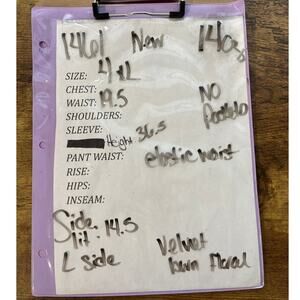 1461 New 140g
SIZE: 4XL
CHEST:
WAIST: 19.5 NO
SHOULDERS:
SLEEVE:
Height 36.5
PANT WAIST: elastic waist
RISE:
HIPS:
INSEAM:
Side
lit. 14.5 Velvet
L side Floral